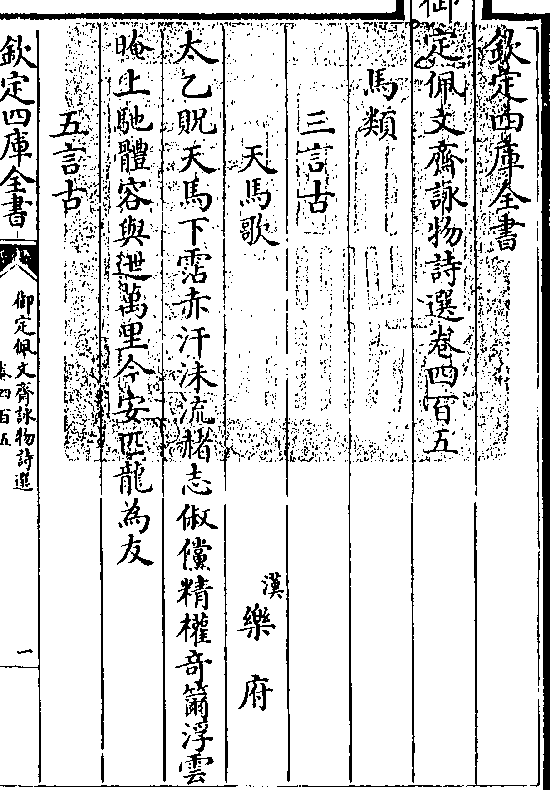 欽定四庫全書
御定佩文齋詠物詩選卷四百五
馬類
三言古
天馬歌 漢樂府
太乙貺天馬下霑赤汗沫流赭志俶儻精權奇籋浮雲
晻上馳體容與迣萬里今安匹龍為友
五言古
欽定四庫全書
御定佩文齋詠物詩選
卷四百五
一